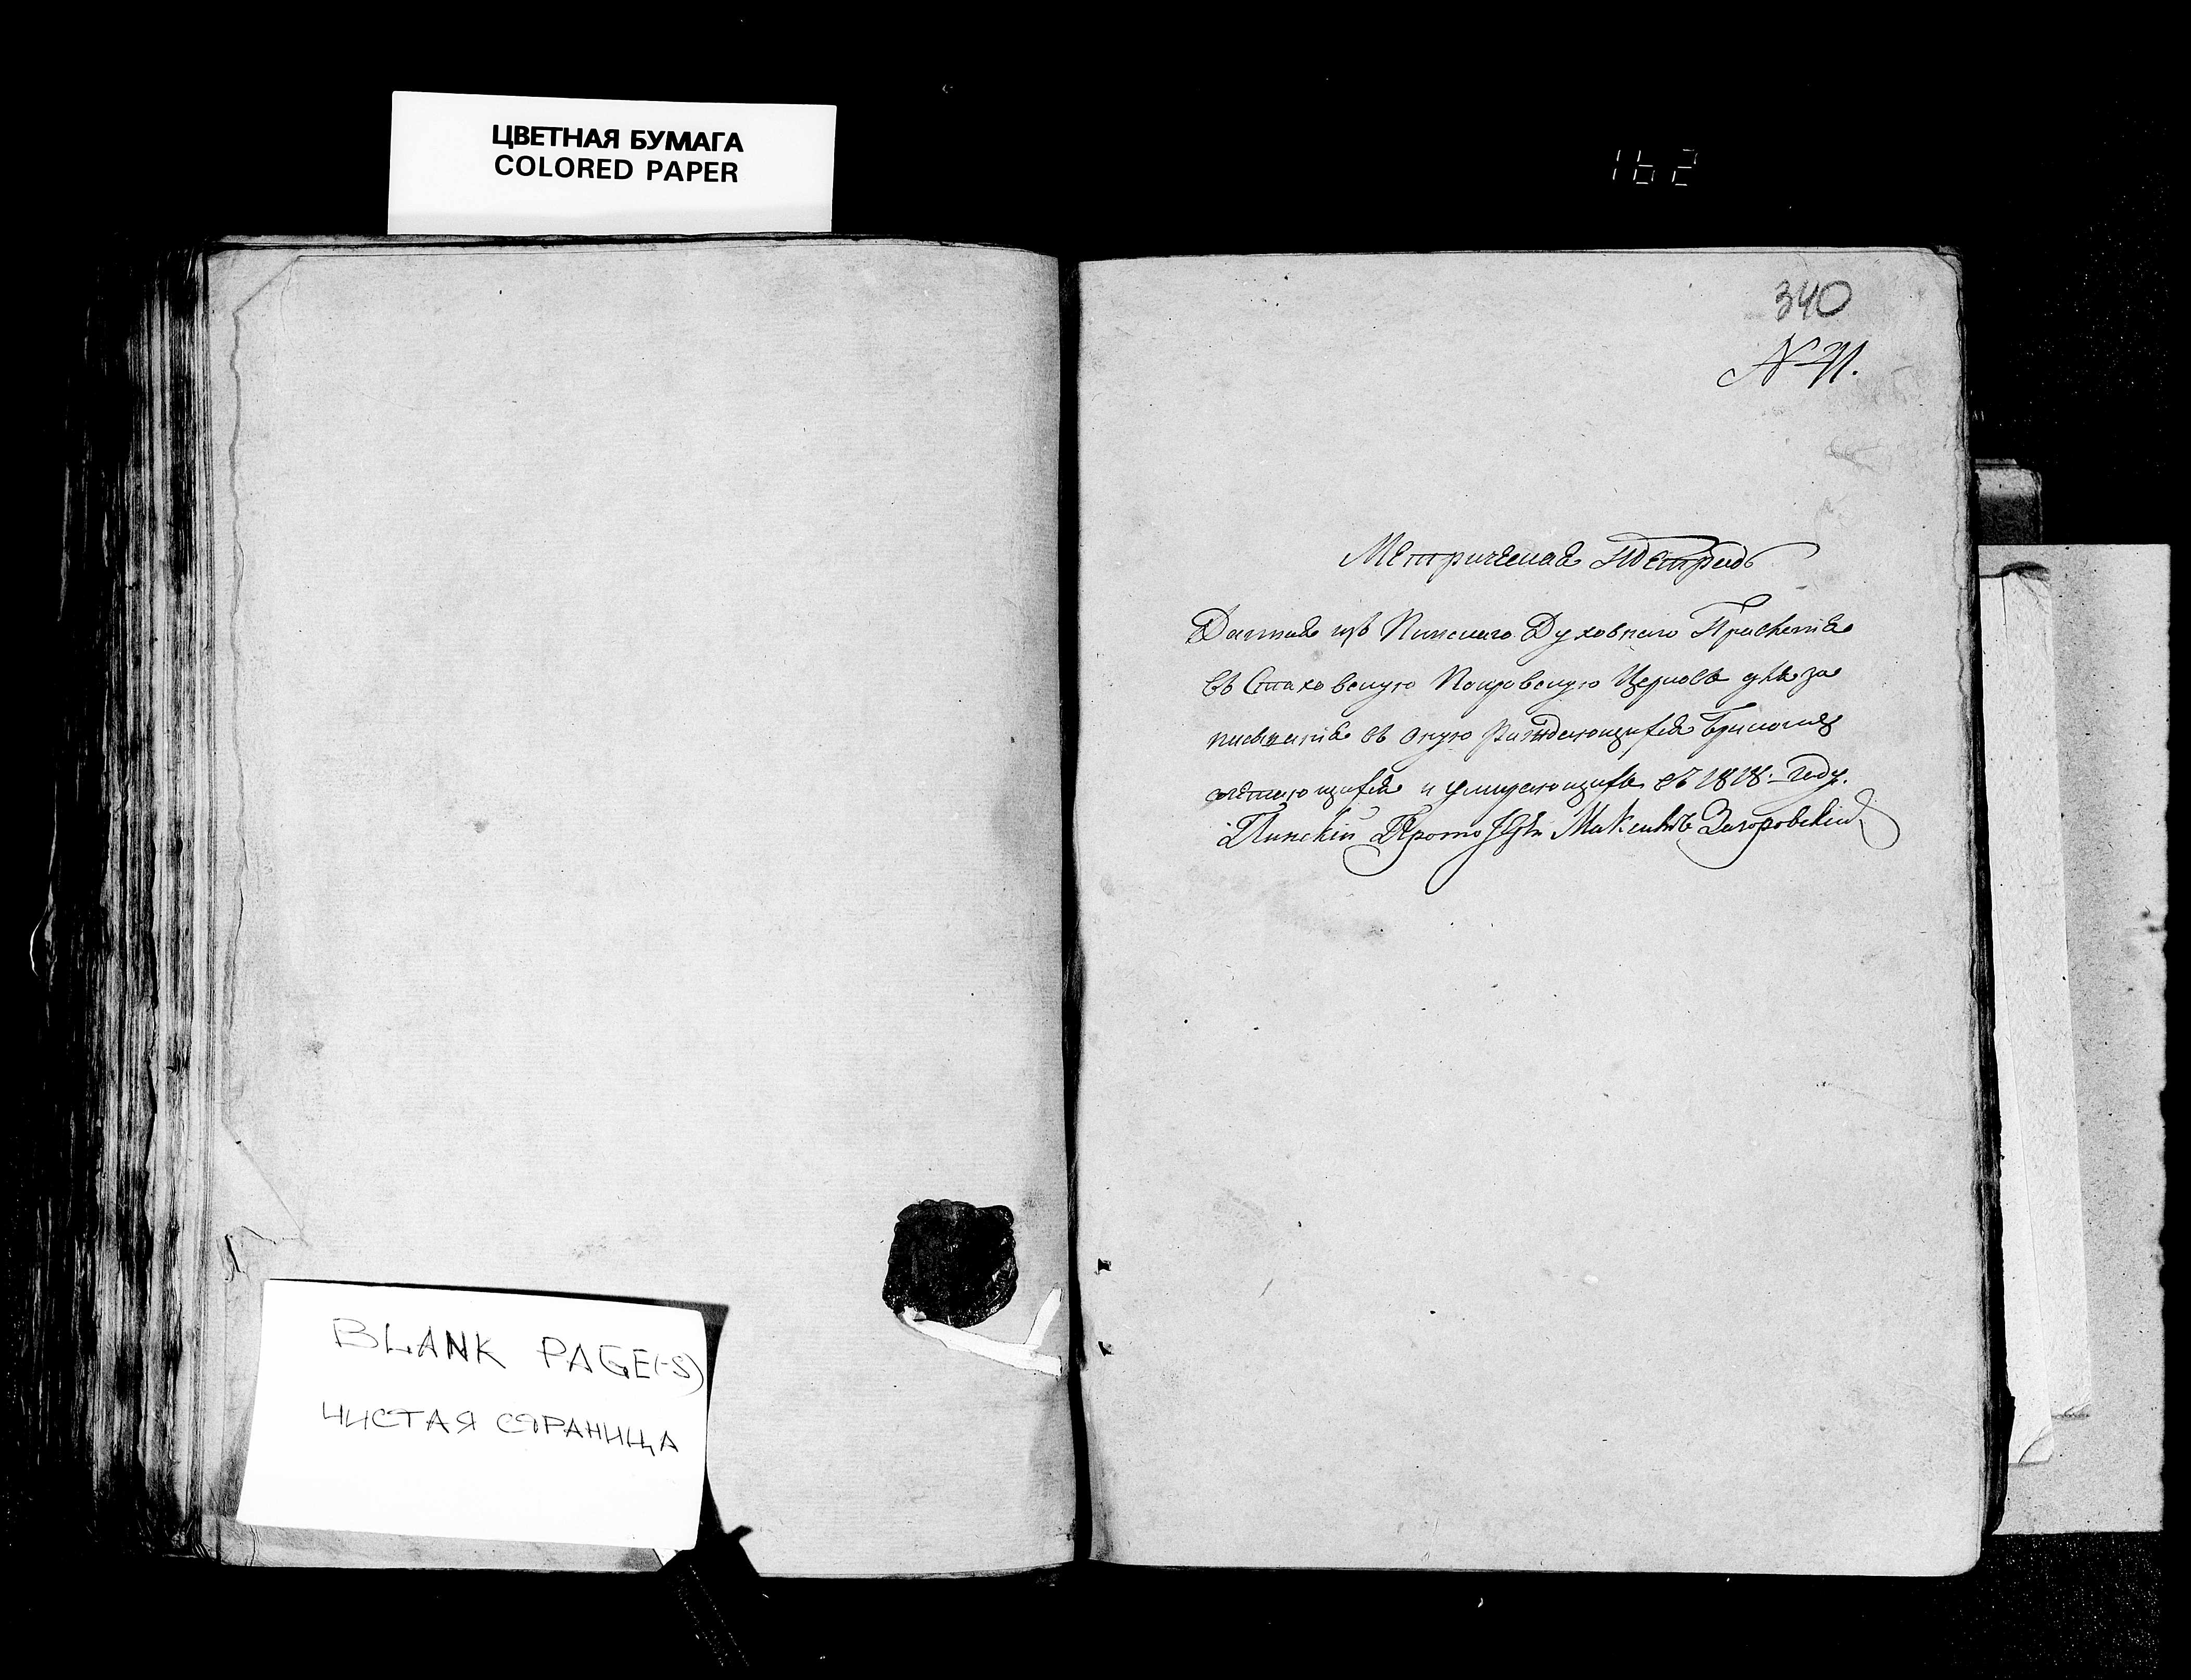 ЦВЕТНАЯ БУМАГА
COLORED PAPER
162
340
Метрическая тетрадь
Данная изъ Пинскаго Духовнаго Правленія
въ Стаховскую Покровскую Церковь для за
писыванія въ оную раждающихся бракомъ
сочетающихся и умирающихъ въ 1818-году.
Пинскій Прото Загоровскій
BLANK PAGE(-S)
ЧИСТАЯ СТРАНИЦА